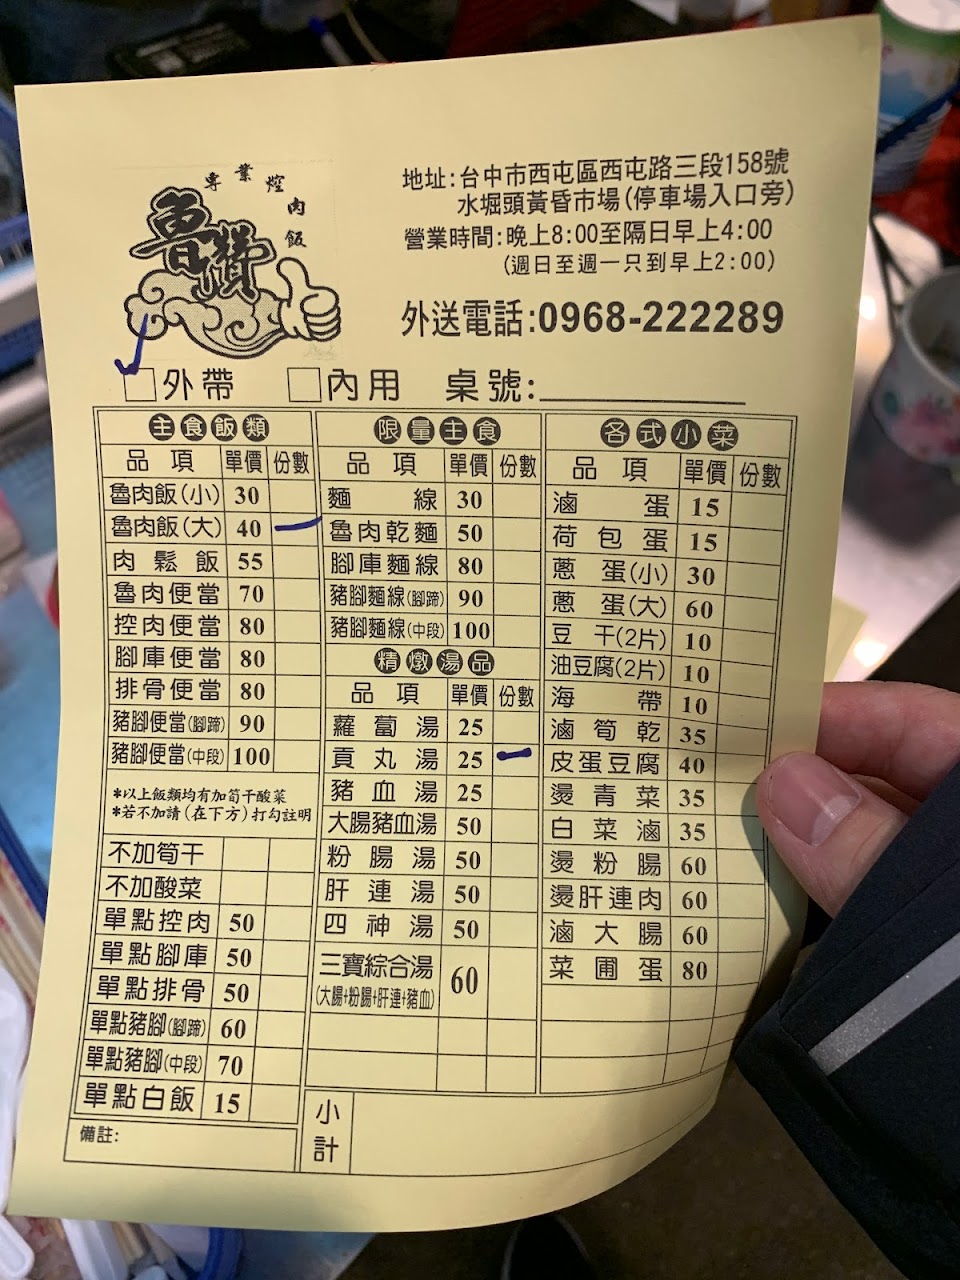 專業焢肉飯
魯讚
地址:台中市西屯區西屯路三段158號
水堀頭黃昏市場(停車場入口旁)
營業時間:晚上8:00至隔日早上4:00
(週日至週一只到早上2:00)
外送電話:0968-222289
✓□外帶 □內用 桌號:
主食飯類
品項 單價 份數
魯肉飯(小) 30
魯肉飯(大) 40 一
肉鬆飯 55
魯肉便當 70
控肉便當 80
腳庫便當 80
排骨便當 80
豬腳便當(腳蹄) 90
豬腳便當(中段) 100
*以上飯類均有加筍干酸菜
*若不加請(在下方)打勾註明
不加筍干
不加酸菜
單點控肉 50
單點腳庫 50
單點排骨 50
單點豬腳(腳蹄) 60
單點豬腳(中段) 70
單點白飯 15
備註:
限量主食
品項 單價 份數
麵線 30
魯肉乾麵 50
腳庫麵線 80
豬腳麵線(腳蹄) 90
豬腳麵線(中段) 100
精燉湯品
品項 單價 份數
蘿蔔湯 25
貢丸湯 25 一
豬血湯 25
大腸豬血湯 50
粉腸湯 50
肝連湯 50
四神湯 50
三寶綜合湯 60
(大腸+粉腸+肝連+豬血)
小計
各式小菜
品項 單價 份數
滷蛋 15
荷包蛋 15
蔥蛋(小) 30
蔥蛋(大) 60
豆干(2片) 10
油豆腐(2片) 10
海帶 10
滷筍乾 35
皮蛋豆腐 40
燙青菜 35
白菜滷 35
燙粉腸 60
燙肝連肉 60
滷大腸 60
菜圃蛋 80